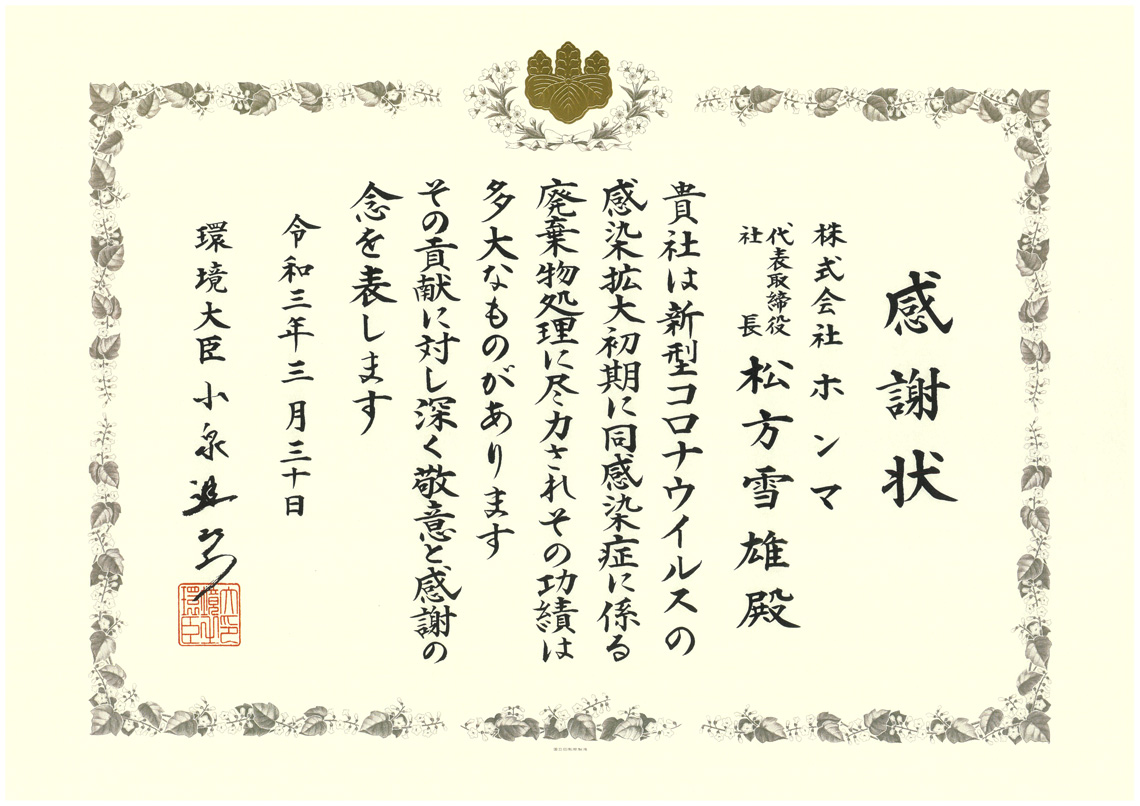 感謝状
株式会社ホンマ
代表取締役
社長
松方雪雄殿
貴社は新型コロナウイルスの
感染拡大初期に同感染症に係る
廃棄物処理に尽力されその功績は
多大なものがあります
その貢献に対し深く敬意と感謝の
念を表します
令和三年三月三十日
環境大臣小泉進次郎
環境大臣之印